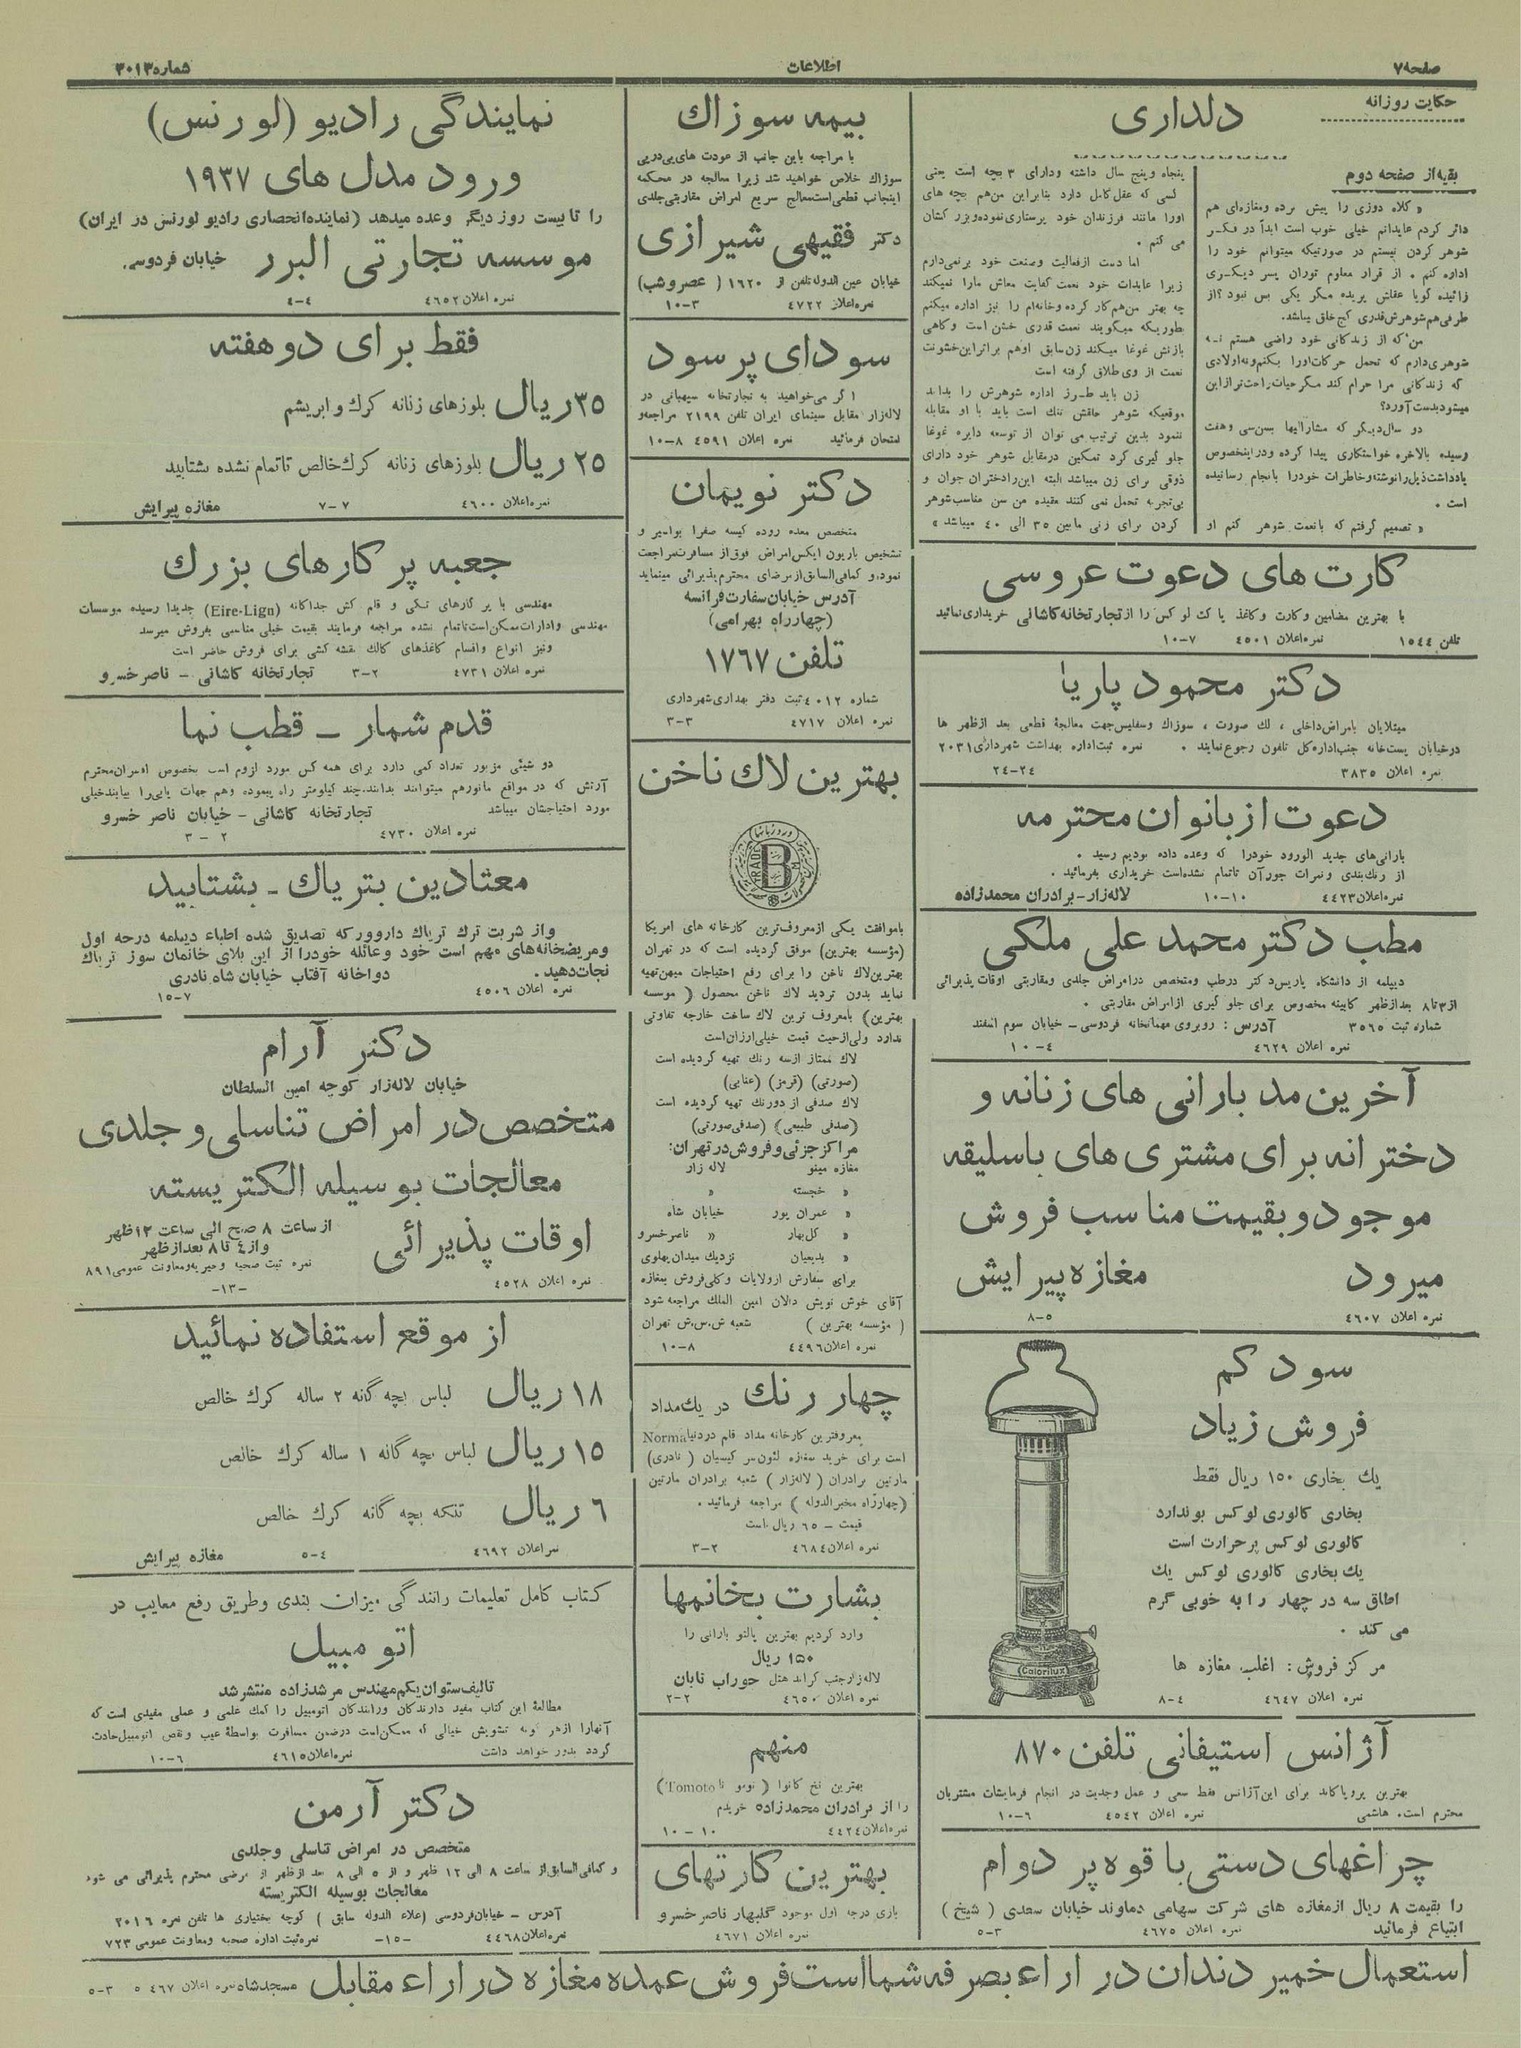 صفحه ۷
اطلاعات
شماره ۳۰۱۳
حکایت روزانه
دلداری
بقیه از صفحه دوم
« کلاه دوزی را پیش برده ومغازه‌ای هم
دائر کردم عایدانم خیلی خوب است ابداً در فکر
شوهر کردن نیستم در صورتیکه میتوانم خود را
اداره کنم . از قرار معلوم توران پسر دیگری
زائیده گویا عقلش پریده مگر یکی بس نبود ؟ از
طرفی هم شوهرش قدری کج خلق میباشد.
من که از زندگانی خود راضی هستم نه
شوهری دارم که تحمل حرکات اورا بکنم ونه اولادی
که زندگانی مرا حرام کند مگر حیات راحت تر از این
میشود بدست آورد؟
دو سال دیگر که مشارالیها بسن سی وهفت
رسیده بالاخره خواستگاری پیدا کرده ودراینخصوص
یادداشت ذیل را نوشته وخاطرات خودرا بانجام رسانیده
است .
« تصمیم گرفتم که با نعمت شوهر کنم او
پنجاه وپنج سال داشته ودارای ۳ بچه است یعنی
کسی که عقل کامل دارد بنابراین من هم بچه های
اورا مانند فرزندان خود پرستاری نموده و بزرگشان
می کنم .
اما دست از فعالیت وصنعت خود بر نمی دارم
زیرا عایدات خود نعمت کفایت معاش مارا نمیکند
چه بهتر من هم کار کرده وخانه ام را نیز اداره میکنم
بطوریکه میگویند نعمت قدری خشن است وگاهی
بازنش غوغا میکند زن سابق او هم براثر این خشونت
نعمت از وی طلاق گرفته است
زن باید طرز اداره شوهرش را بداند
موقعیکه شوهر خلقش تنگ است باید با او مقابله
ننمود بدین ترتیب می توان از توسعه دایره غوغا
جلو گیری کرد تمکین درمقابل شوهر خود دارای
ذوقی برای زن میباشد البته این را دختران جوان و
بی تجربه تحمل نمی کنند بعقیده من سن مناسب شوهر
کردن برای زنی مابین ۳۵ الی ۴۰ میباشد »
کارت های دعوت عروسی
با بهترین مضامین وکارت وکاغذ پاکت لوکس را از تجارتخانه کاشانی خریداری نمائید
تلفن ۱۵۴۴ نمره اعلان ۴۵۰۱ ۷-۱۰
دکتر محمود پاریا
مبتلایان بامراض داخلی ، لک صورت ، سوزاک وسفلیس جهت معالجهٔ قطعی بعد از ظهر ها
درخیابان پست خانه جنب اداره کل تلفون رجوع نمایند . نمره ثبت اداره بهداشت شهرداری ۲۰۳۱
نمره اعلان ۳۸۳۵ ۲۴-۲۴
دعوت از بانوان محترمه
بارانی های جدید الورود خودرا که وعده داده بودیم رسید .
از رنگ بندی و نمرات جور آن تا تمام نشده است خریداری بفرمائید .
نمره اعلان ۴۴۲۳ ۱۰-۱۰ لاله زار - برادران محمدزاده
مطب دکتر محمد علی ملکی
دیپلمه از دانشگاه پاریس دکتر درطب ومتخصص درامراض جلدی ومقاربتی اوقات پذیرائی
از ۳ تا ۸ بعد از ظهر کابینه مخصوص برای جلو گیری از امراض مقاربتی .
شماره ثبت ۳۵۶۵ آدرس : روبروی مهمانخانه فردوسی - خیابان سوم اسفند
نمره اعلان ۴۶۲۹ ۴-۱۰
آخرین مد بارانی های زنانه و
دخترانه برای مشتری های باسلیقه
موجود و بقیمت مناسب فروش
میرود مغازه پیرایش
نمره اعلان ۴۶۰۷ ۵-۸
سود کم
فروش زیاد
یک بخاری ۱۵۰ ریال فقط
بخاری کالوری لوکس بو ندارد
کالوری لوکس پر حرارت است
یک بخاری کالوری لوکس یک
اطاق سه در چهار را به خوبی گرم
می کند .
مرکز فروش : اغلب مغازه ها
نمره اعلان ۴۶۴۷ ۴-۸
Calorilux
آژانس استیفانی تلفن ۸۷۰
بهترین پروپاکاند برای این آژانس فقط سعی و عمل وجدیت در انجام فرمایشات مشتریان
محترم است. هاشمی نمره اعلان ۴۵۴۲ ۶-۱۰
چراغهای دستی با قوه پر دوام
را بقیمت ۸ ریال از مغازه های شرکت سهامی دماوند خیابان سعدی ( شیخ )
ابتیاع فرمائید نمره اعلان ۴۶۷۵ ۳-۵
بیمه سوزاک
با مراجعه باین جانب از عودت های پی درپی
سوزاک خلاص خواهید شد زیرا معالجه در محکمه
اینجانب قطعی است معالج سریع امراض مقاربتی جلدی
دکتر فقیهی شیرازی
خیابان عین الدوله تلفن از ۱۶۲۰ ( عصر وشب )
نمره اعلان ۴۷۲۲ ۳-۱۰
سودای پر سود
اگر می خواهید به تجارتخانه سیهبانی در
لاله زار مقابل سینمای ایران تلفن ۲۱۹۹ مراجعه و
امتحان فرمائید نمره اعلان ۴۵۹۱ ۸-۱۰
دکتر نویمان
متخصص معده روده کیسه صفرا بواسیر و
تشخیص باریون ایکس امراض فوق از مسافرت مراجعت
نموده و کمافی السابق از مرضای محترم پذیرائی مینماید
آدرس خیابان سفارت فرانسه
(چهارراه بهرامی)
تلفن ۱۷۶۷
شماره ۴۰۱۲ ثبت دفتر بهداری شهرداری
نمره اعلان ۴۷۱۷ ۳-۳
بهترین لاک ناخن
B
TRADE
باموافقت یکی از معروف ترین کارخانه های امریکا
(مؤسسه بهترین) موفق گردیده است که در تهران
بهترین لاک ناخن را برای رفع احتیاجات میهن تهیه
نماید بدون تردید لاک ناخن محصول ( موسسه
بهترین) بامعروف ترین لاک ساخت خارجه تفاوتی
ندارد ولی از حیث قیمت خیلی ارزان است
لاک ممتاز از سه رنگ تهیه گردیده است
(صورتی) (قرمز) (عنابی)
لاک صدفی از دورنگ تهیه گردیده است
(صدفی طبیعی) (صدفی صورتی)
مراکز جزئی و فروش در تهران:
مغازه مینو لاله زار
« خجسته «
« عمران پور خیابان شاه
« گلبهار « ناصر خسرو
« بدیعیان نزدیک میدان پهلوی
برای سفارش از ولایات وکلی فروش بمغازه
آقای خوش نویش دالان امین الملک مراجعه شود
( مؤسسه بهترین ) شعبه ش.س.ش تهران
نمره اعلان ۴۴۹۶ ۸-۱۰
چهار رنگ در یک مداد
معروفترین کارخانه مداد قلم در دنیا Norma
است برای خرید بمغازه لئون سر کیسیان ( نادری)
مارتین برادران ( لاله زار ) شعبه برادران مارتین
(چهارراه مخبرالدوله ) مراجعه فرمائید .
قیمت - ۶۵ ریال است
نمره اعلان ۴۶۸۴ ۲-۳
بشارت بخانمها
وارد کردیم بهترین پالتو بارانی را
۱۵۰ ریال
لاله زار جنب گراند هتل جوراب تابان
نمره اعلان ۴۶۵۰ ۲-۲
منهم
بهترین نخ کانوا ( توموتا Tomoto)
را از برادران محمدزاده خریدم
نمره اعلان ۴۴۲۴ ۱۰-۱۰
بهترین کارتهای
بازی درجه اول موجود گلبهار ناصر خسرو
نمره اعلان ۴۶۷۱
نمایندگی رادیو (لورنس)
ورود مدل های ۱۹۳۷
را تا بیست روز دیگر وعده میدهد (نماینده انحصاری رادیو لورنس در ایران)
موسسه تجارتی البرز خیابان فردوسی
نمره اعلان ۴۶۵۲ ۴-۴
فقط برای دو هفته
۳۵ ریال بلوزهای زنانه کرک و ابریشم
۲۵ ریال بلوزهای زنانه کرک خالص تا تمام نشده بشتابید
نمره اعلان ۴۶۰۰ ۷-۷ مغازه پیرایش
جعبه پر گارهای بزرگ
مهندسی با پر گارهای تکی و قلم کش جداگانه (Eire-Lign) جدیدا رسیده موسسات
مهندسی وادارات ممکن است تا تمام نشده مراجعه فرمایند بقیمت خیلی مناسبی بفروش میرسد
ونیز انواع واقسام کاغذهای کالک نقشه کشی برای فروش حاضر است
نمره اعلان ۴۷۳۱ ۲-۳ تجارتخانه کاشانی - ناصر خسرو
قدم شمار - قطب نما
دو شیئی مزبور تعداد کمی دارد برای همه کس مورد لزوم است بخصوص افسران محترم
آرتش که در مواقع مانور هم میتوانند بدانند چند کیلومتر راه پیموده وهم جهات یابی را بیابند خیلی
مورد احتیاجشان میباشد تجارتخانه کاشانی - خیابان ناصر خسرو
نمره اعلان ۴۷۳۰ ۲ - ۳
معتادین بتریاک - بشتابید
واز شربت ترک تریاک داروور که تصدیق شده اطباء دیپلمه درجه اول
ومریضخانه های مهم است خود وعائله خودرا از این بلای خانمان سوز تریاک
نجات دهید . دواخانه آفتاب خیابان شاه نادری
نمره اعلان ۴۵۰۶ ۷-۱۵
دکتر آرام
خیابان لاله زار کوچه امین السلطان
متخصص در امراض تناسلی و جلدی
معالجات بوسیله الکتریسته
اوقات پذیرائی
از ساعت ۸ صبح الی ساعت ۱۲ ظهر
و از ۴ تا ۸ بعد از ظهر
نمره ثبت صحیه و خیریه ومعاونت عمومی ۸۹۱
نمره اعلان ۴۵۲۸ -۱۳-
از موقع استفاده نمائید
۱۸ ریال لباس بچه گانه ۲ ساله کرک خالص
۱۵ ریال لباس بچه گانه ۱ ساله کرک خالص
۶ ریال تنکه بچه گانه کرک خالص
نمره اعلان ۴۶۹۲ ۴-۵ مغازه پیرایش
کتاب کامل تعلیمات رانندگی میزان بندی وطریق رفع معایب در
اتومبیل
تالیف ستوان یکم مهندس مرشدزاده منتشر شد
مطالعهٔ این کتاب مفید دارندگان ورانندگان اتومبیل را کمک علمی و عملی مفیدی است که
آنهارا از هر گونه تشویش خیالی که ممکن است درضمن مسافرت بواسطهٔ عیب ونقص اتومبیل حادث
گردد بدور خواهد داشت نمره اعلان ۴۶۱۵ ۶-۱۰
دکتر آرمن
متخصص در امراض تناسلی وجلدی
و کمافی السابق از ساعت ۸ الی ۱۲ ظهر و از ۵ الی ۸ بعد از ظهر از مرضی محترم پذیرائی می شود
معالجات بوسیله الکتریسته
آدرس - خیابان فردوسی (علاء الدوله سابق ) کوچه بختیاری ها تلفن نمره ۲۰۱۶
نمره اعلان ۴۴۶۸ -۱۵- نمره ثبت اداره صحیه ومعاونت عمومی ۷۲۳
استعمال خمیر دندان در اراء بصرفه شما است فروش عمده مغازه در اراء مقابل مسجدشاه نمره اعلان ۴۶۷۵ ۳-۵